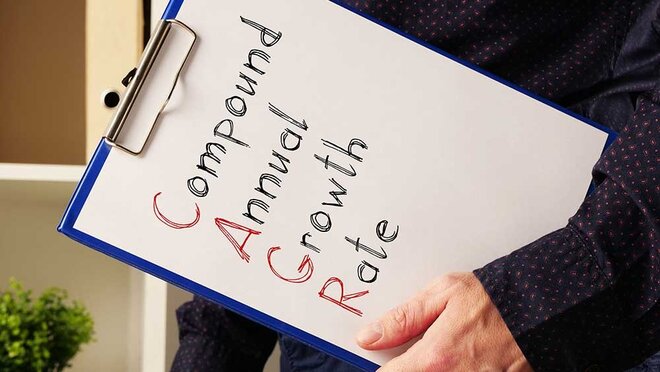 Compound
Annual
Growth
Rate